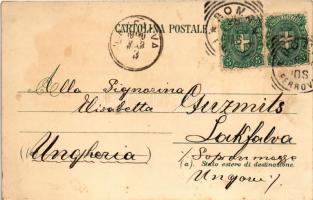 CARTOLINA POSTALE
ROMA
Alla Signorina
Elisabetta Guzmits
Lakfalva
(Ungheria) (Sopron megye
(a). Stato estero di destinazione.
Ungarn)